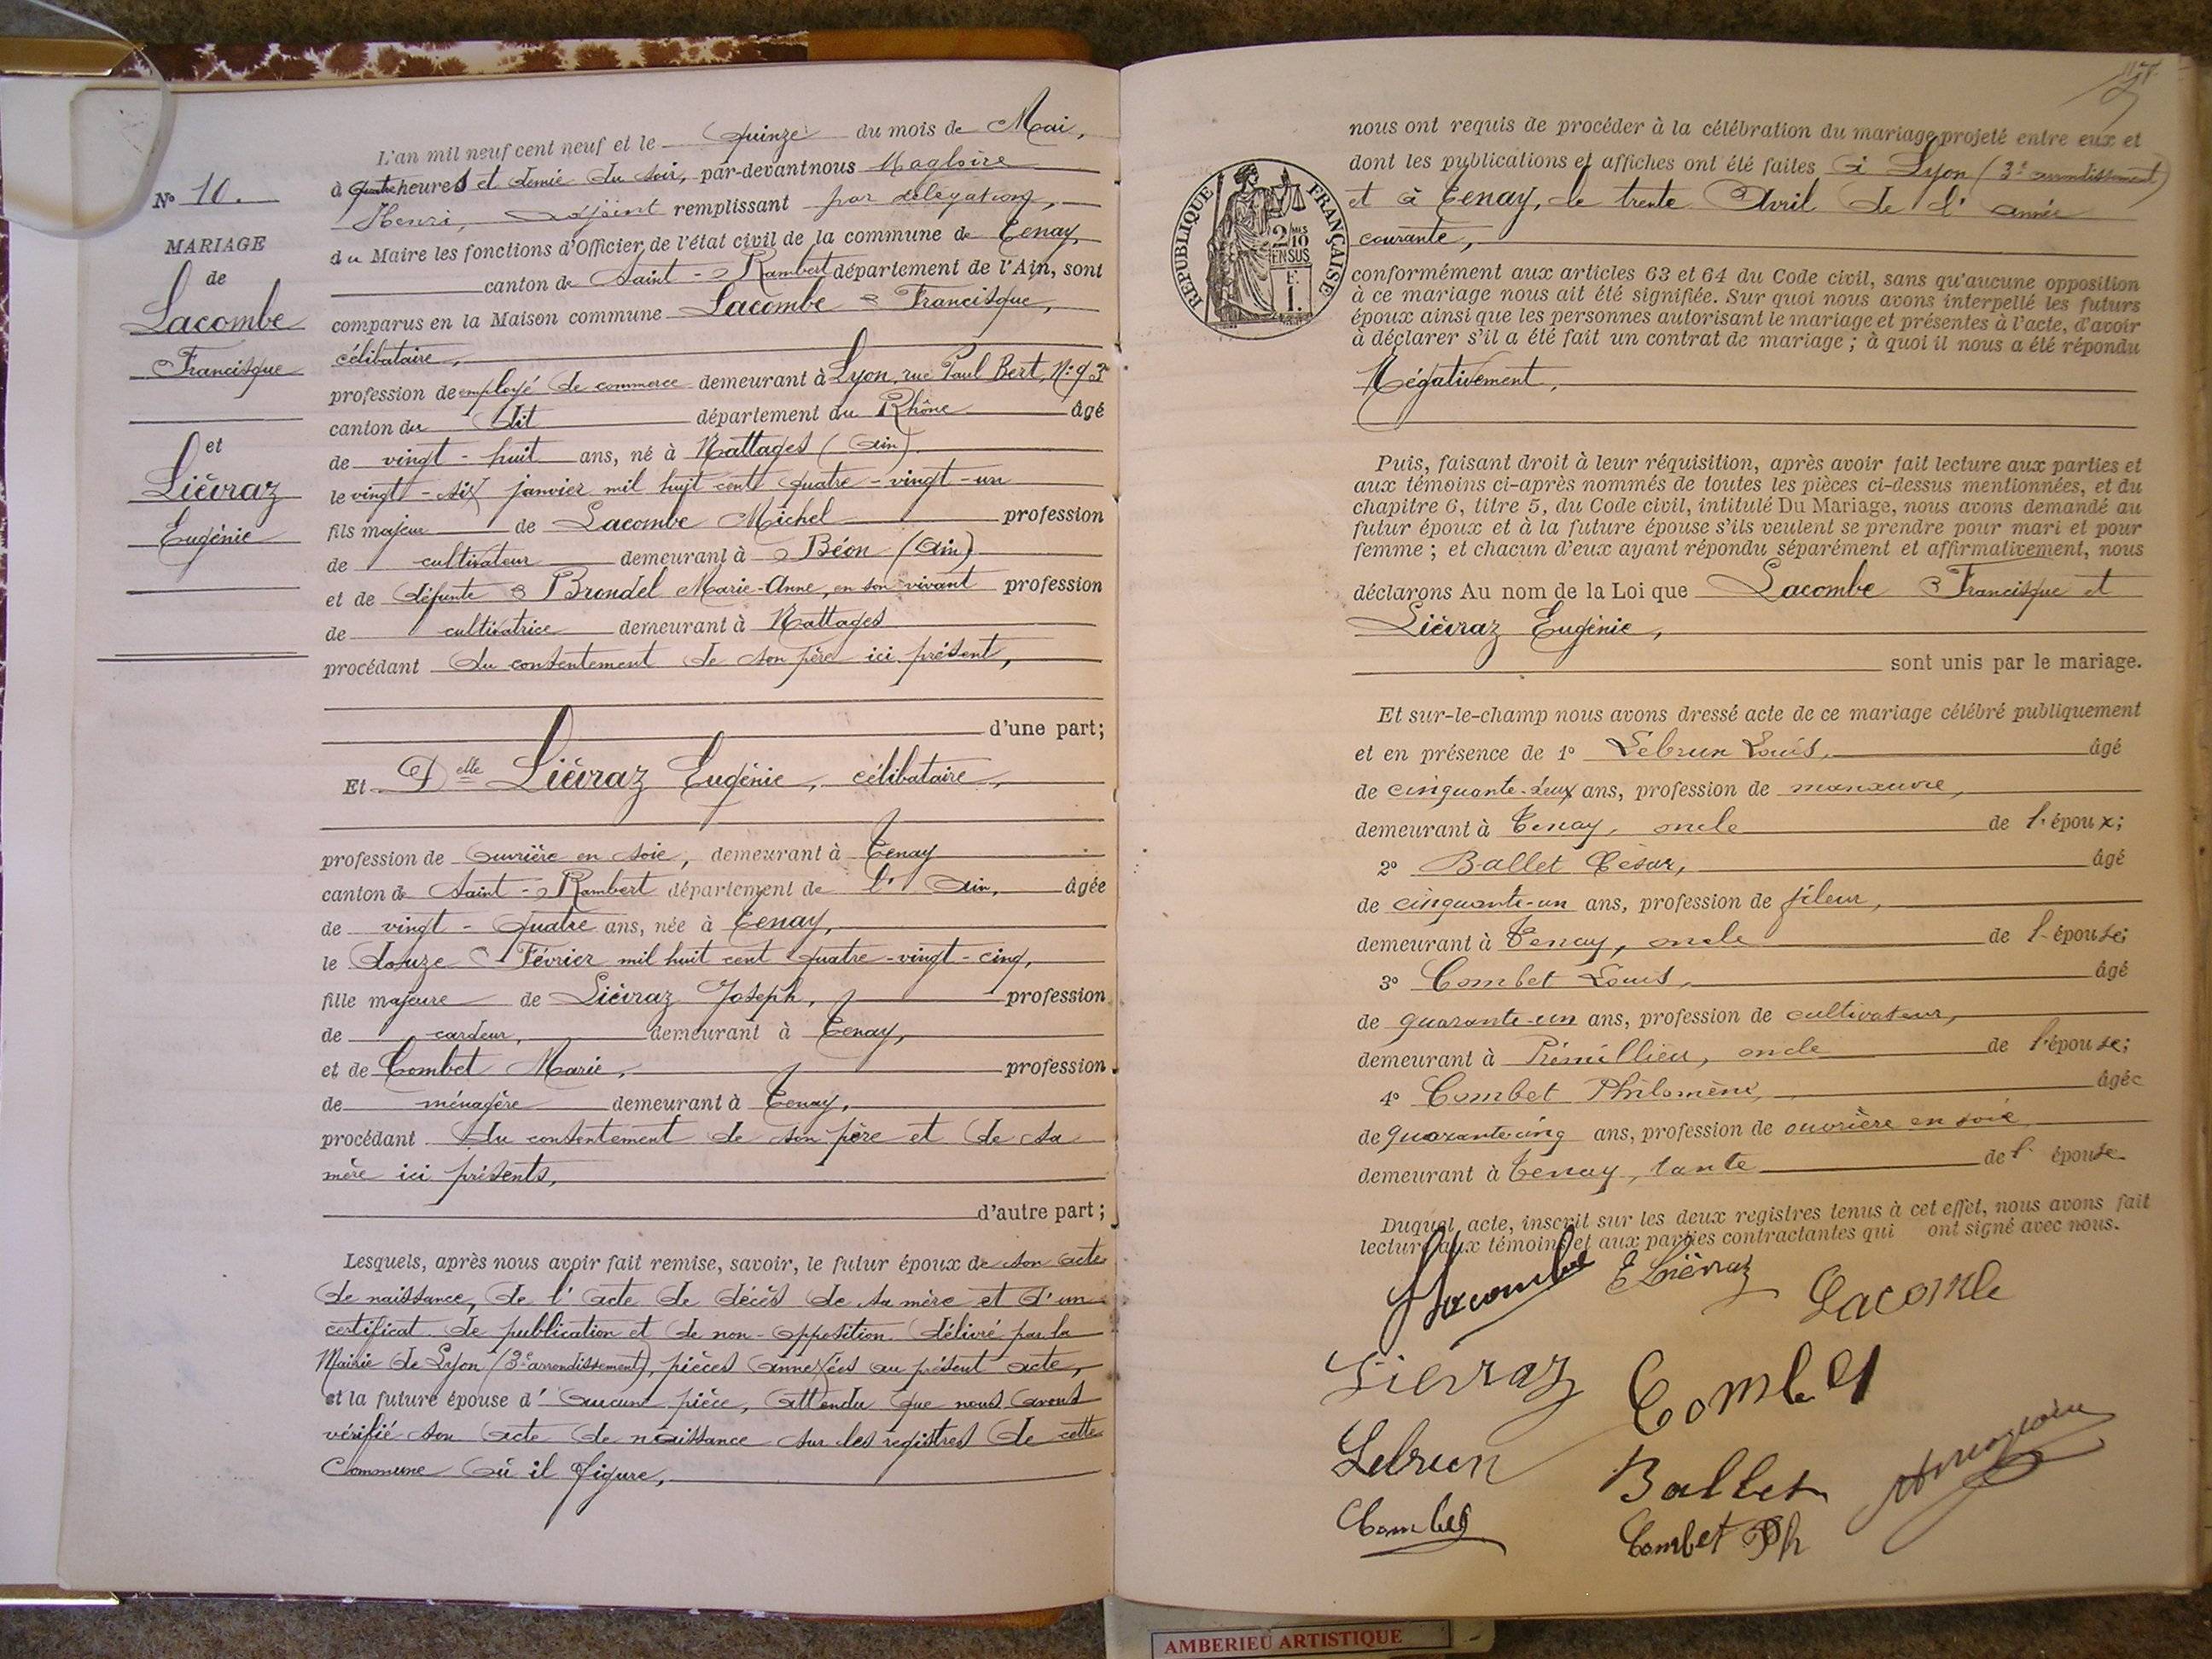 N° 10.
MARIAGE
de
Lacombe
Francisque
et
Lièvraz
Eugénie
L'an mil neuf cent neuf et le quinze du mois de Mai,
à quatre heures et demie du soir, par-devant nous Magloire
Henri, adjoint remplissant par délégation,
du Maire les fonctions d'Officier de l'état civil de la commune de Tenay,
canton de Saint-Rambert département de l'Ain, sont
comparus en la Maison commune Lacombe Francisque,
célibataire,
profession de employé de commerce demeurant à Lyon, rue Paul Bert, N° 93
canton du dit département du Rhône âgé
de vingt-huit ans, né à Nattages (Ain)
le vingt-six janvier mil huit cent quatre-vingt-un
fils majeur de Lacombe Michel profession
de cultivateur demeurant à Béon (Ain)
et de défunte Brondel Marie-Anne, en son vivant profession
de cultivatrice demeurant à Nattages
procédant du consentement de son père ici présent,
d'une part;
Et Delle Lièvraz Eugénie, célibataire,
profession de ouvrière en soie, demeurant à Tenay
canton de Saint-Rambert département de l'Ain, âgée
de vingt-quatre ans, née à Tenay,
le douze Février mil huit cent quatre-vingt-cinq,
fille majeure de Lièvraz Joseph, profession
de cardeur, demeurant à Tenay,
et de Combet Marie, profession
de ménagère demeurant à Tenay,
procédant du consentement de son père et de sa
mère ici présents,
d'autre part;
Lesquels, après nous avoir fait remise, savoir, le futur époux de son acte
de naissance, de l'acte de décès de sa mère et d'un
certificat de publication et de non-opposition délivré par la
Mairie de Lyon (3e arrondissement), pièces annexées au présent acte,
et la future épouse d'aucune pièce, attendu que nous avons
vérifié son acte de naissance sur les registres de cette
Commune où il figure,
RÉPUBLIQUE FRANÇAISE
2/10
EN SUS
F.
1.
nous ont requis de procéder à la célébration du mariage projeté entre eux et
dont les publications et affiches ont été faites à Lyon (3e arrondissement)
et à Tenay, le trente Avril de l'année
courante,
conformément aux articles 63 et 64 du Code civil, sans qu'aucune opposition
à ce mariage nous ait été signifiée. Sur quoi nous avons interpellé les futurs
époux ainsi que les personnes autorisant le mariage et présentes à l'acte, d'avoir
à déclarer s'il a été fait un contrat de mariage; à quoi il nous a été répondu
Négativement,
Puis, faisant droit à leur réquisition, après avoir fait lecture aux parties et
aux témoins ci-après nommés de toutes les pièces ci-dessus mentionnées, et du
chapitre 6, titre 5, du Code civil, intitulé Du Mariage, nous avons demandé au
futur époux et à la future épouse s'ils veulent se prendre pour mari et pour
femme; et chacun d'eux ayant répondu séparément et affirmativement, nous
déclarons Au nom de la Loi que Lacombe Francisque et
Lièvraz Eugénie,
sont unis par le mariage.
Et sur-le-champ nous avons dressé acte de ce mariage célébré publiquement
et en présence de 1° Lebrun Louis, âgé
de cinquante-deux ans, profession de manœuvre,
demeurant à Tenay, oncle de l'époux;
2° Ballet César, âgé
de cinquante-un ans, profession de fileur,
demeurant à Tenay, oncle de l'épouse;
3° Combet Louis, âgé
de quarante-un ans, profession de cultivateur,
demeurant à Prémillieu, oncle de l'épouse;
4° Combet Philomène, âgée
de quarante cinq ans, profession de ouvrière en soie
demeurant à Tenay, tante de l'épouse
Duquel acte, inscrit sur les deux registres tenus à cet effet, nous avons fait
lecture aux témoins et aux parties contractantes qui ont signé avec nous.
Lacombe E Lièvraz Lacomble
Lièvraz Combet
Lebrun Ballet
Combet Combet Ph
AMBERIEU ARTISTIQUE